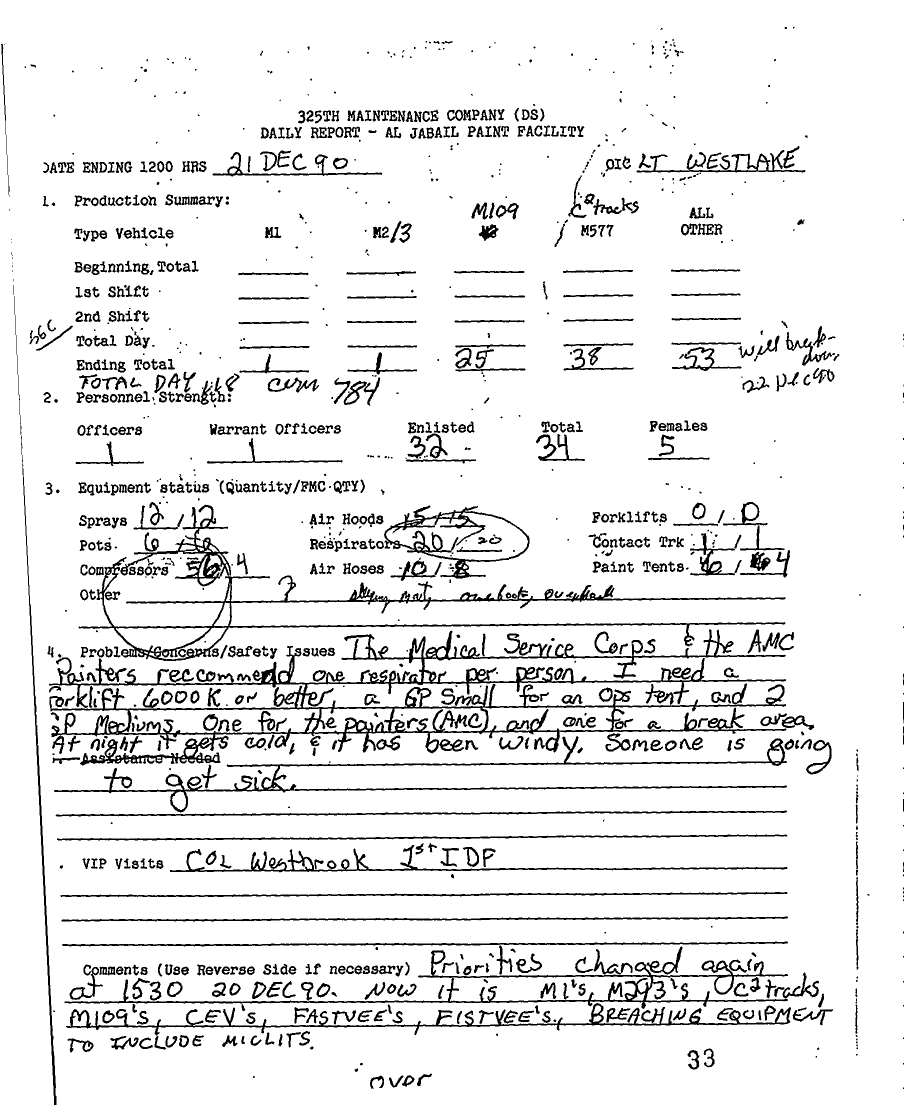 325TH MAINTENANCE COMPANY (DS)
DAILY REPORT - AL JABAIL PAINT FACILITY
DATE ENDING 1200 HRS 21 DEC 90 OIC LT WESTLAKE
1. Production Summary:
M109 C2 tracks ALL
Type Vehicle M1 M2/3 M577 OTHER
Beginning, Total
1st Shift
2nd Shift
Total Day.
Ending Total 1 1 25 38 53 will break-
down
22 Dec 90
TOTAL DAY 118 cum 784
2. Personnel Strength:
Officers Warrant Officers Enlisted Total Females
1 1 32 34 5
3. Equipment status (Quantity/FMC QTY)
Sprays 12 / 12 Air Hoods 15/15 Forklifts 0 / 0
Pots 6 / 6 Respirators 20 / 20 Contact Trk 1 / 1
Compressors 6 / 4 Air Hoses 10 / 8 Paint Tents 6 / 4
Other ?
4. Problems/Concerns/Safety Issues The Medical Service Corps & the AMC
Painters reccommend one respirator per person. I need a
forklift 6000K or better, a GP Small for an Ops tent, and 2
GP Mediums. One for the painters (AMC), and one for a break area.
At night it gets cold, & it has been windy. Someone is going
Assistance Needed
to get sick.
VIP Visits COL Westbrook 1st IDF
Comments (Use Reverse Side if necessary) Priorities changed again
at 1530 20 DEC 90. NOW it is M1's, M2&3's, C2 tracks,
M109's, CEV's, FASTVEE's, FISTVEE's, BREACHING EQUIPMENT
TO INCLUDE MICLITS.
33
over